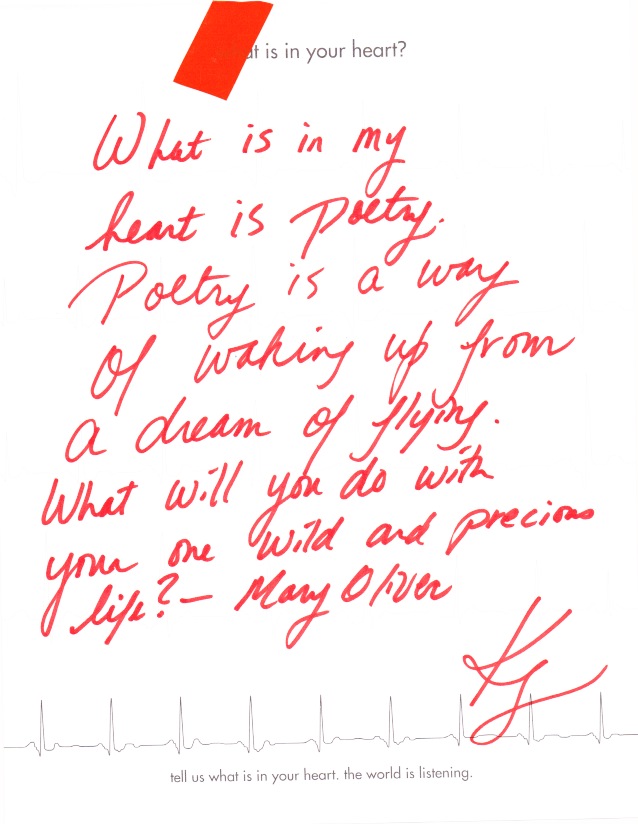 at is in your heart?
What is in my
heart is Poetry.
Poetry is a way
Of waking up from
a dream of flying.
What will you do with
your one wild and precious
life? — Mary Oliver
tell us what is in your heart. the world is listening.